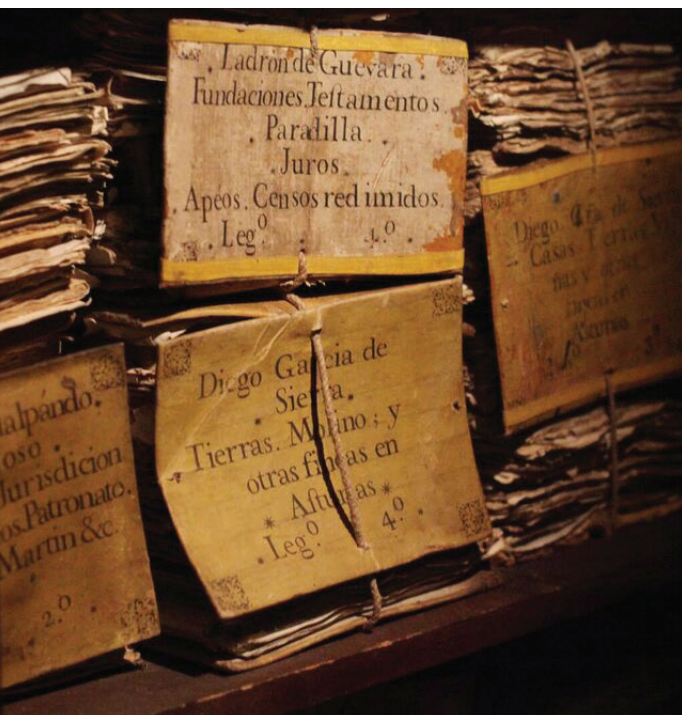 . Ladron de Guevara .
Fundaciones. Testamentos
. Paradilla .
. Juros .
. Apeos. Censos redimidos.
. Leg.º 1.º
Diego Garcia de
Sierra.
Tierras. Molino; y
otras fincas en
* Asturias *
. Leg.º 4.º
alpándo.
oso.
Jurisdicion
os. Patronato.
Martin &c.
2.º
Diego Gra. de Sierra
Casas. Tierras. Y
otras
Asturias
3.º